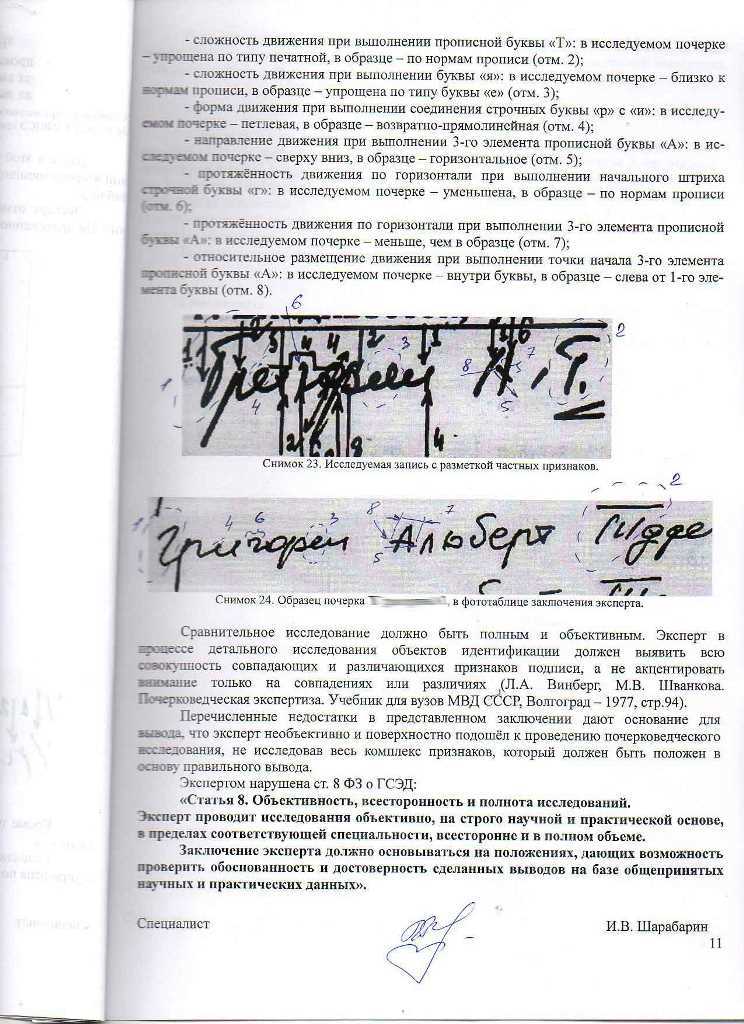 - сложность движения при выполнении прописной буквы «Т»: в исследуемом почерке
– упрощена по типу печатной, в образце – по нормам прописи (отм. 2);
- сложность движения при выполнении буквы «я»: в исследуемом почерке – близко к
нормам прописи, в образце – упрощена по типу буквы «е» (отм. 3);
- форма движения при выполнении соединения строчных буквы «р» с «и»: в исследу-
емом почерке – петлевая, в образце – возвратно-прямолинейная (отм. 4);
- направление движения при выполнении 3-го элемента прописной буквы «А»: в ис-
следуемом почерке – сверху вниз, в образце – горизонтальное (отм. 5);
- протяжённость движения по горизонтали при выполнении начального штриха
строчной буквы «г»: в исследуемом почерке – уменьшена, в образце – по нормам прописи
(отм. 6);
- протяжённость движения по горизонтали при выполнении 3-го элемента прописной
буквы «А»: в исследуемом почерке – меньше, чем в образце (отм. 7);
- относительное размещение движения при выполнении точки начала 3-го элемента
прописной буквы «А»: в исследуемом почерке – внутри буквы, в образце – слева от 1-го эле-
мента буквы (отм. 8).
6
2
3
1
8
7
4
5
А. Т.
Снимок 23. Исследуемая запись с разметкой частных признаков.
2
1
4 6 3 8 7
5
Григорян Альберт
Снимок 24. Образец почерка Т, в фототаблице заключения эксперта.
Сравнительное исследование должно быть полным и объективным. Эксперт в
процессе детального исследования объектов идентификации должен выявить всю
совокупность совпадающих и различающихся признаков подписи, а не акцентировать
внимание только на совпадениях или различиях (Л.А. Винберг, М.В. Шванкова.
Почерковедческая экспертиза. Учебник для вузов МВД СССР, Волгоград – 1977, стр.94).
Перечисленные недостатки в представленном заключении дают основание для
вывода, что эксперт необъективно и поверхностно подошёл к проведению почерковедческого
исследования, не исследовав весь комплекс признаков, который должен быть положен в
основу правильного вывода.
Экспертом нарушена ст. 8 ФЗ о ГСЭД:
«Статья 8. Объективность, всесторонность и полнота исследований.
Эксперт проводит исследования объективно, на строго научной и практической основе,
в пределах соответствующей специальности, всесторонне и в полном объеме.
Заключение эксперта должно основываться на положениях, дающих возможность
проверить обоснованность и достоверность сделанных выводов на базе общепринятых
научных и практических данных».
Специалист И.В. Шарабарин
11